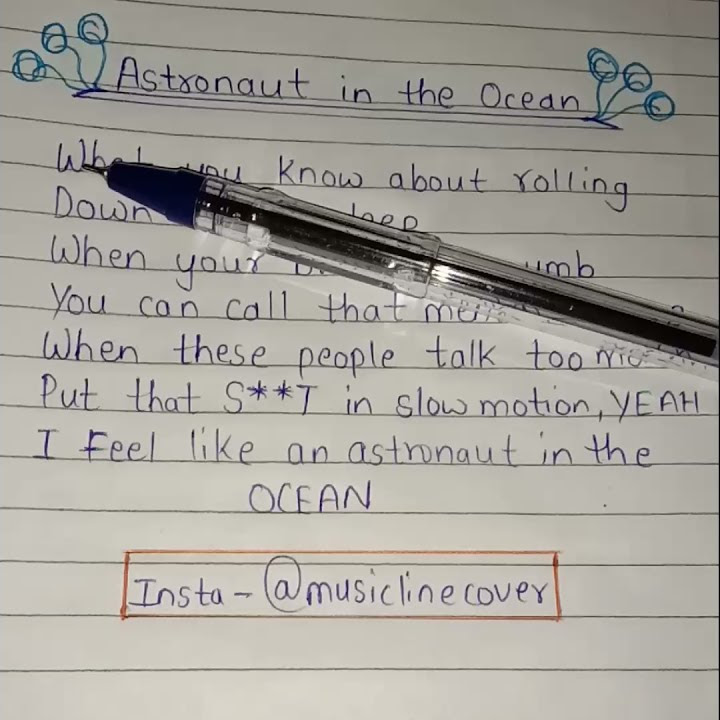 Astronaut in the Ocean
What you know about rolling
Down deep
When your umb
You can call that
When these people talk too
Put that S**T in slow motion, YEAH
I Feel like an astronaut in the
OCEAN
Insta - @musiclinecover